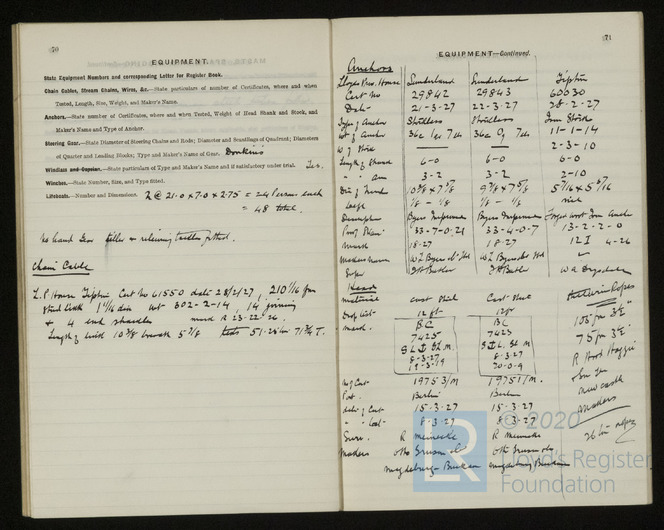 70
EQUIPMENT.
State Equipment Numbers and corresponding Letter for Register Book.
Chain Cables, Stream Chains, Wires, &c.—State particulars of number of Certificates, where and when
Tested, Length, Size, Weight, and Maker's Name.
Anchors.—State number of Certificates, where and when Tested, Weight of Head Shank and Stock, and
Maker's Name and Type of Anchor.
Steering Gear.—State Diameter of Steering Chains and Rods; Diameter and Scantlings of Quadrant; Diameters
of Quarter and Leading Blocks; Type and Maker's Name of Gear. Donkins
Windlass and Capstan.—State particulars of Type and Maker's Name and if satisfactory under trial. Yes.
Winches.—State Number, Size, and Type fitted.
Lifeboats.—Number and Dimensions. 2 @ 21.0 x 7.0 x 2.75 = 24 Persons each
= 48 total.
No hand gear tiller & relieving tackles fitted.
Chain Cable
L.P. House Tipton Cert No 61550 date 28/2/27, 210 1/16 fm
stud link 1 11/16 dia wt 302-2-14, 14 joining
& 4 end shackles
Length of link 10 3/8 breadth 5 7/8 Tests 51.25 & 71 3/4 T.
71
EQUIPMENT—Continued.
Anchors
Lloyds Prov. House Sunderland Sunderland Tipton
Cert No 29842 29843 60030
Date 21-3-27 22-3-27 28-2-27
Type of Anchor Stockless Stockless Iron Stock
Wt of Anchor 36c 1qr 7lbs 36c 0q 7lbs 11-1-14
W of Stock — — 2-3-10
Length of Shank 6-0 6-0 6-0
" " Arm 3-2 3-2 2-10
Dia of Trend 5 7/16 x 5 7/16
1/8 - 1/8 1/8 - 1/8 nil
Description Byers Improved Byers Improved Forged wrot Iron Anch
Proof Strain 33-7-0.21 33-4-0.7 13-2-2-0
Mark 18-27 18-27 12 I 4-26
Makers Name WL Byers & Co Ltd WL Byers & Co Ltd
Super JH Butler JH Butler W A Drysdale
Heads
Material Cast Steel Cast Steel
Drop test 12 ft 12 ft
Mark. BC BC
7425 7423
8-3-27 8-3-27
19-3-19 20-0-9
No of Cert 19753/M 19751/M.
Port. Berlin Berlin
date of Cert 15-3-27 15-3-27
" " test 8-3-27 8-3-27
Surv. R Meinecke R Meinecke
Makers Otto Gruson & Co Otto Gruson & Co
Magdeburg-Buckau Magdeburg Buckau
Steel wire Ropes
105 fm 3 3/4"
75 fm 3 1/2"
R Hood Haggie
& Son Ltd
Newcastle
Makers
© 2020
Lloyd's Register
Foundation
LR